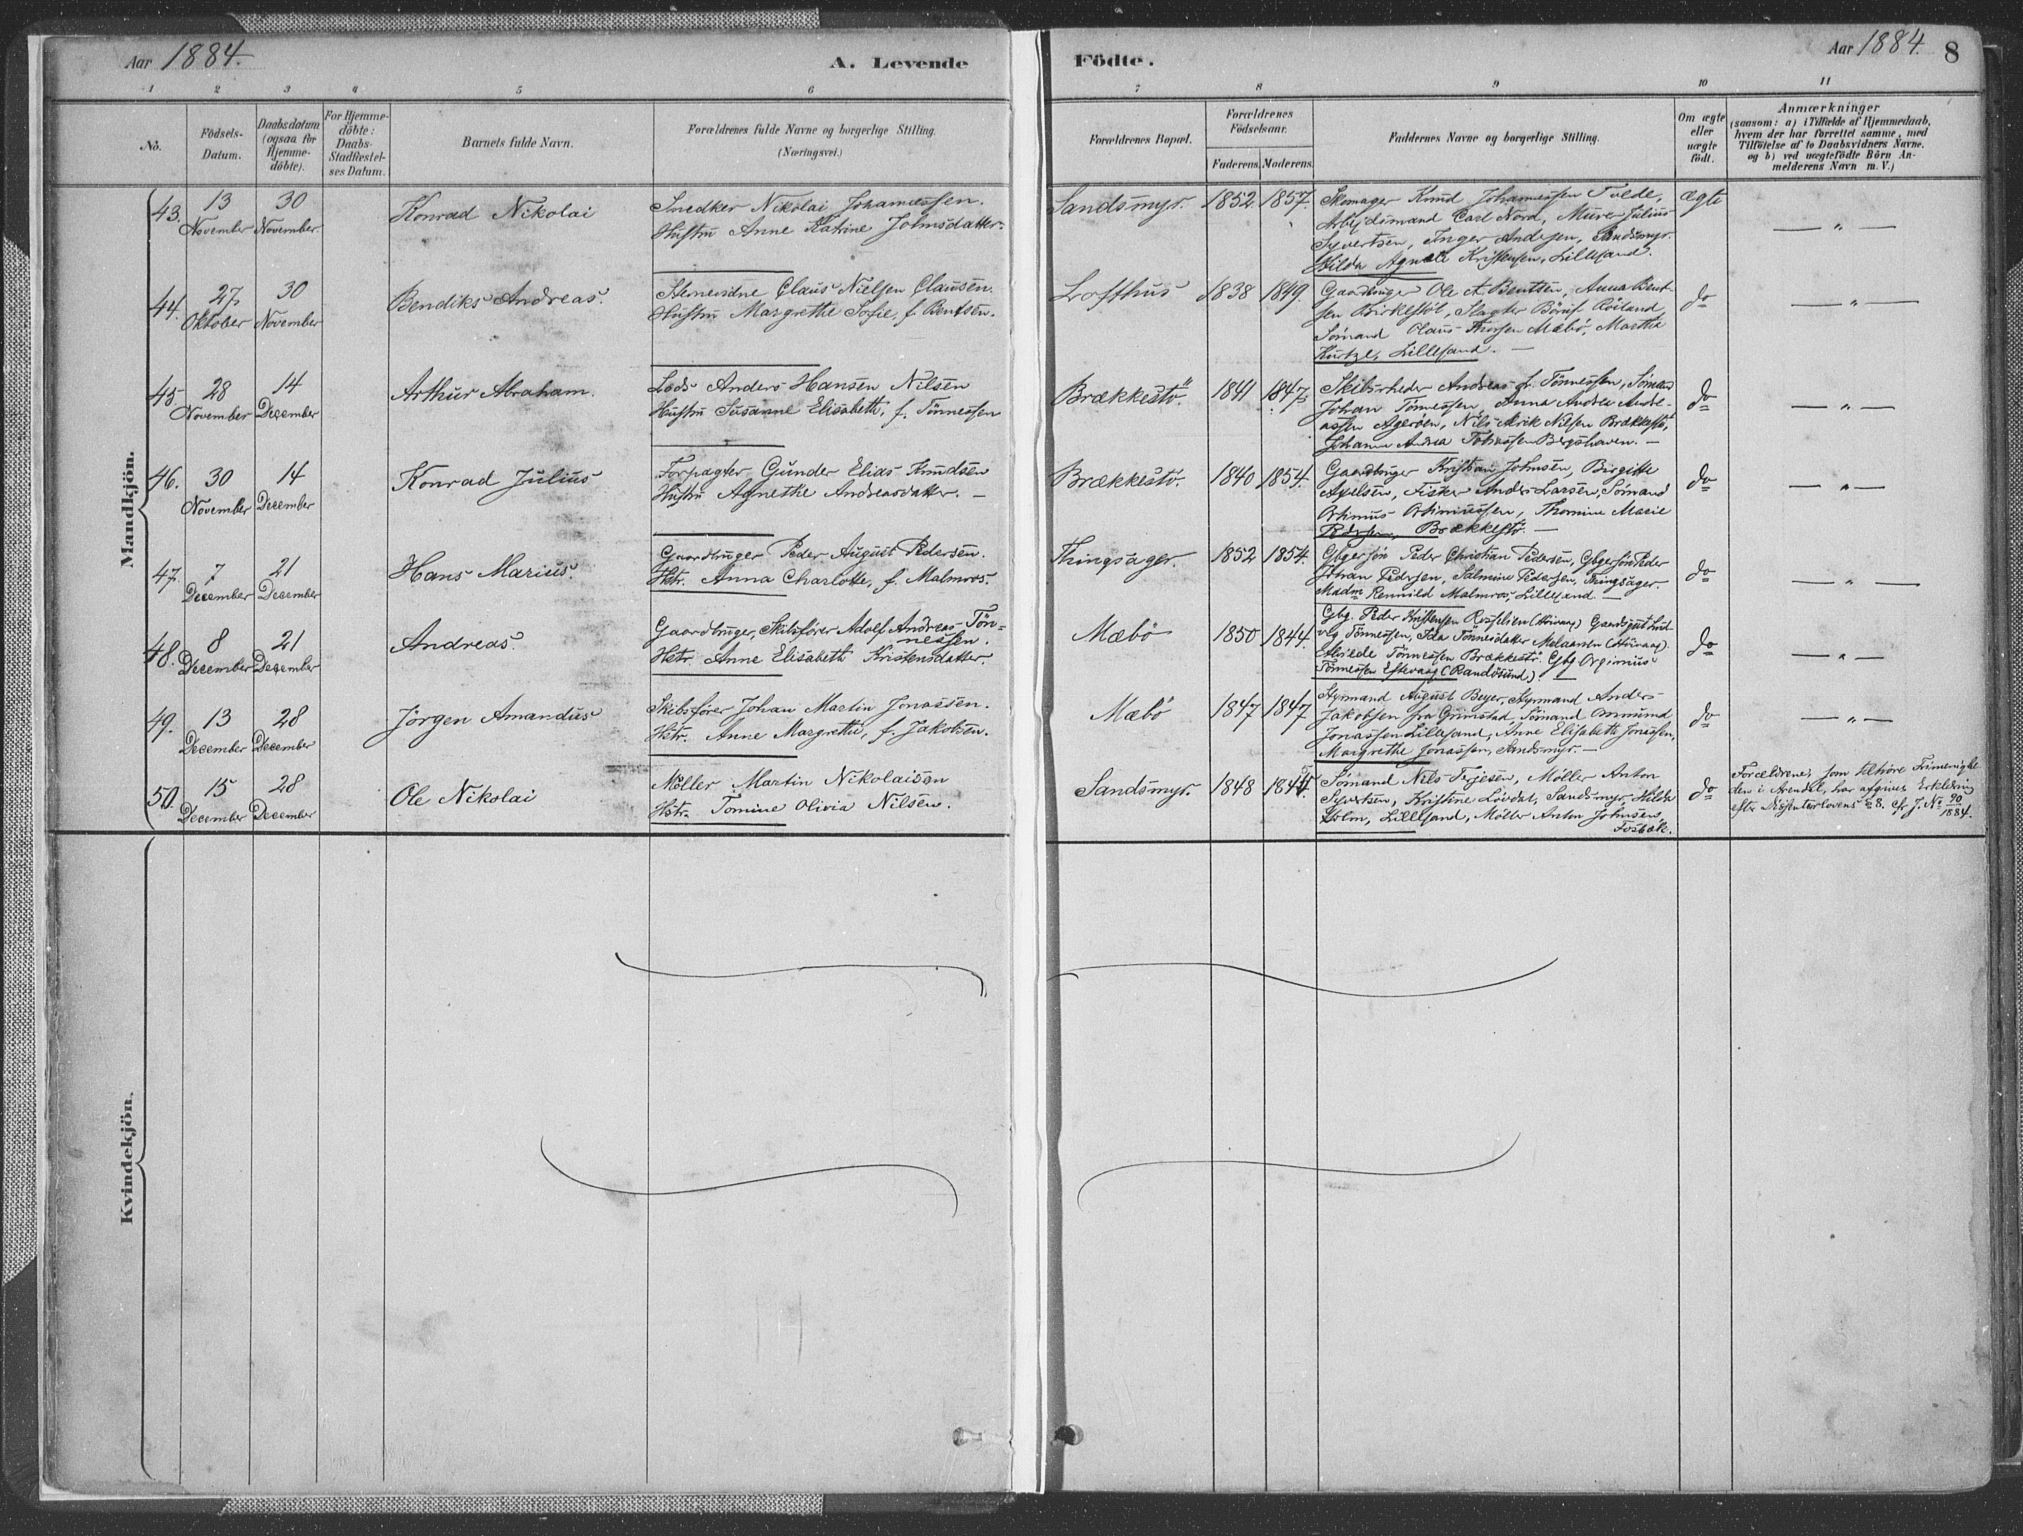 Aar 1884. A. Levende
Födte. Aar 1884. 8
1 2 3 4 5 6 7 8 9 10 11
No.
Födsels-
Datum.
Daabsdatum
(ogsaa for
Hjemme-
döbte).
For Hjemme-
döbte:
Daabs-
Stadfæstel-
ses Datum.
Barnets fulde Navn.
Forældrenes fulde Navne og borgerlige Stilling.
(Næringsvei.)
Forældrenes Bopæl.
Forældrenes
Födselsaar.
Faderens. Moderens.
Faddernes Navne og borgerlige Stilling.
Om ægte
eller
uægte
født.
Anmærkninger
(saasom: a) i Tilfælde af Hjemmedaab,
hvem der har forrettet samme, med
Tilføielse af to Daabsvidners Navne,
og b) ved uægtefödte Börn An-
melderens Navn m. V.)
Mandkjön.
43. 13 November 30 November
Konrad Nikolai
Snedker Nikolai Johannessen.
Hustru Anne Katrine Johnsdatter.
Sandsmyr. 1852 1857.
Skomager Knud Johannessen Tvede,
Arbejdsmand Carl Nord, Murer Julius
Syvertsen, Inger Andersen, Sandsmyr.
Hilda Agnete Kristensen, Lillesand.
Ægte — " —
44. 27 Oktober 30 November
Bendiks Andreas.
Claus Nielsen Clausen.
Hustru Margrethe Sofie, f. Bentsen.
Lofthus 1838 1849.
Gaardbruger Ole A. Bentsen, Anna Bent-
sen Birkeflöt, Slagter
Sömand Olaus Thorsen Mæbö, Martha
Kurtze, Lillesand. —
do — " —
45. 28 November 14 December
Arthur Abraham.
Lods Anders Hansen Nilsen
Hustru Susanne Elisabeth, f. Tönnessen
Brækkestö. 1841 1847
Skibsrheder Andreas Fr. Tönnessen, Sömand
Johan Tönnessen, Anna Andrea Andre-
assen Ageröen, Nils Nilsen Brækkestö,
Johanne Andrea Bergshaven. —
do — " —
46. 30 November 14 December
Konrad Julius
Forpagter Gunder Elias Knudsen
Hustru Agnethe Andreasdatter. —
Brækkestö. 1840 1854.
Gaardbruger Kristian Johnsen, Birgitte
Axelsen, Fisker Anders Larsen, Sömand
Thomine Marie
Pedersen, Brækkestö —
do — " —
47. 7 December 21 December
Hans Marius.
Gaardbruger Peder August Pedersen.
Hstr. Anna Charlotte, f. Malmros.
Thingsager. 1852 1854.
Gbgersön Peder Christian Pedersen, GbgersönPeder
Johan Pedersen, Salmine Pedersen, Thingsager.
Madm Rennild Malmros, Lillesand. —
do — " —
48. 8 December 21 December
Andreas.
Gaardbruger, Skibsfører Adolf Andreas Tön-
nessen.
Hstr. Anne Elisabeth Kristensdatter.
Mæbö 1850 1844.
Gbg. Peder Kristensen
Tönnessen, Ida Tönnesdatter
Tönnessen Brækkestö. Gbg
Tönnessen Eftevaag (Randösund) —
do — " —
49. 13 December 28 December
Jörgen Amandus
Skibsfører Johan Martin Jonassen.
Hstr. Anne Margrethe, f. Jakobsen.
Mæbö 1847 1847
Styrmand August Beyer, Styrmand Anders
Jakobsen fra Grimstad, Sömand
Jonassen Lillesand, Anne Elisabeth Jonassen,
Margrethe Jonassen, Sandsmyr. —
do — " —
50. 15 December 28 December
Ole Nikolai
Möller Martin Nikolaisen
Hstr. Tomine Olivia Nilsen.
Sandsmyr. 1848
Sømand Nils Terjesen, Møller Anton
Syvertsen, Kristine Lövdal, Sandsmyr, Hilda
Lillesand, Møller Anton Johnsen,
Fosbæk.
do
Forældrene, som tilhöre Frimenighe-
den i Arendal, har afgivet Erklæring
efter Dissenterlovens § 8. cfr J. No 90
1884.
Kvindekjön.